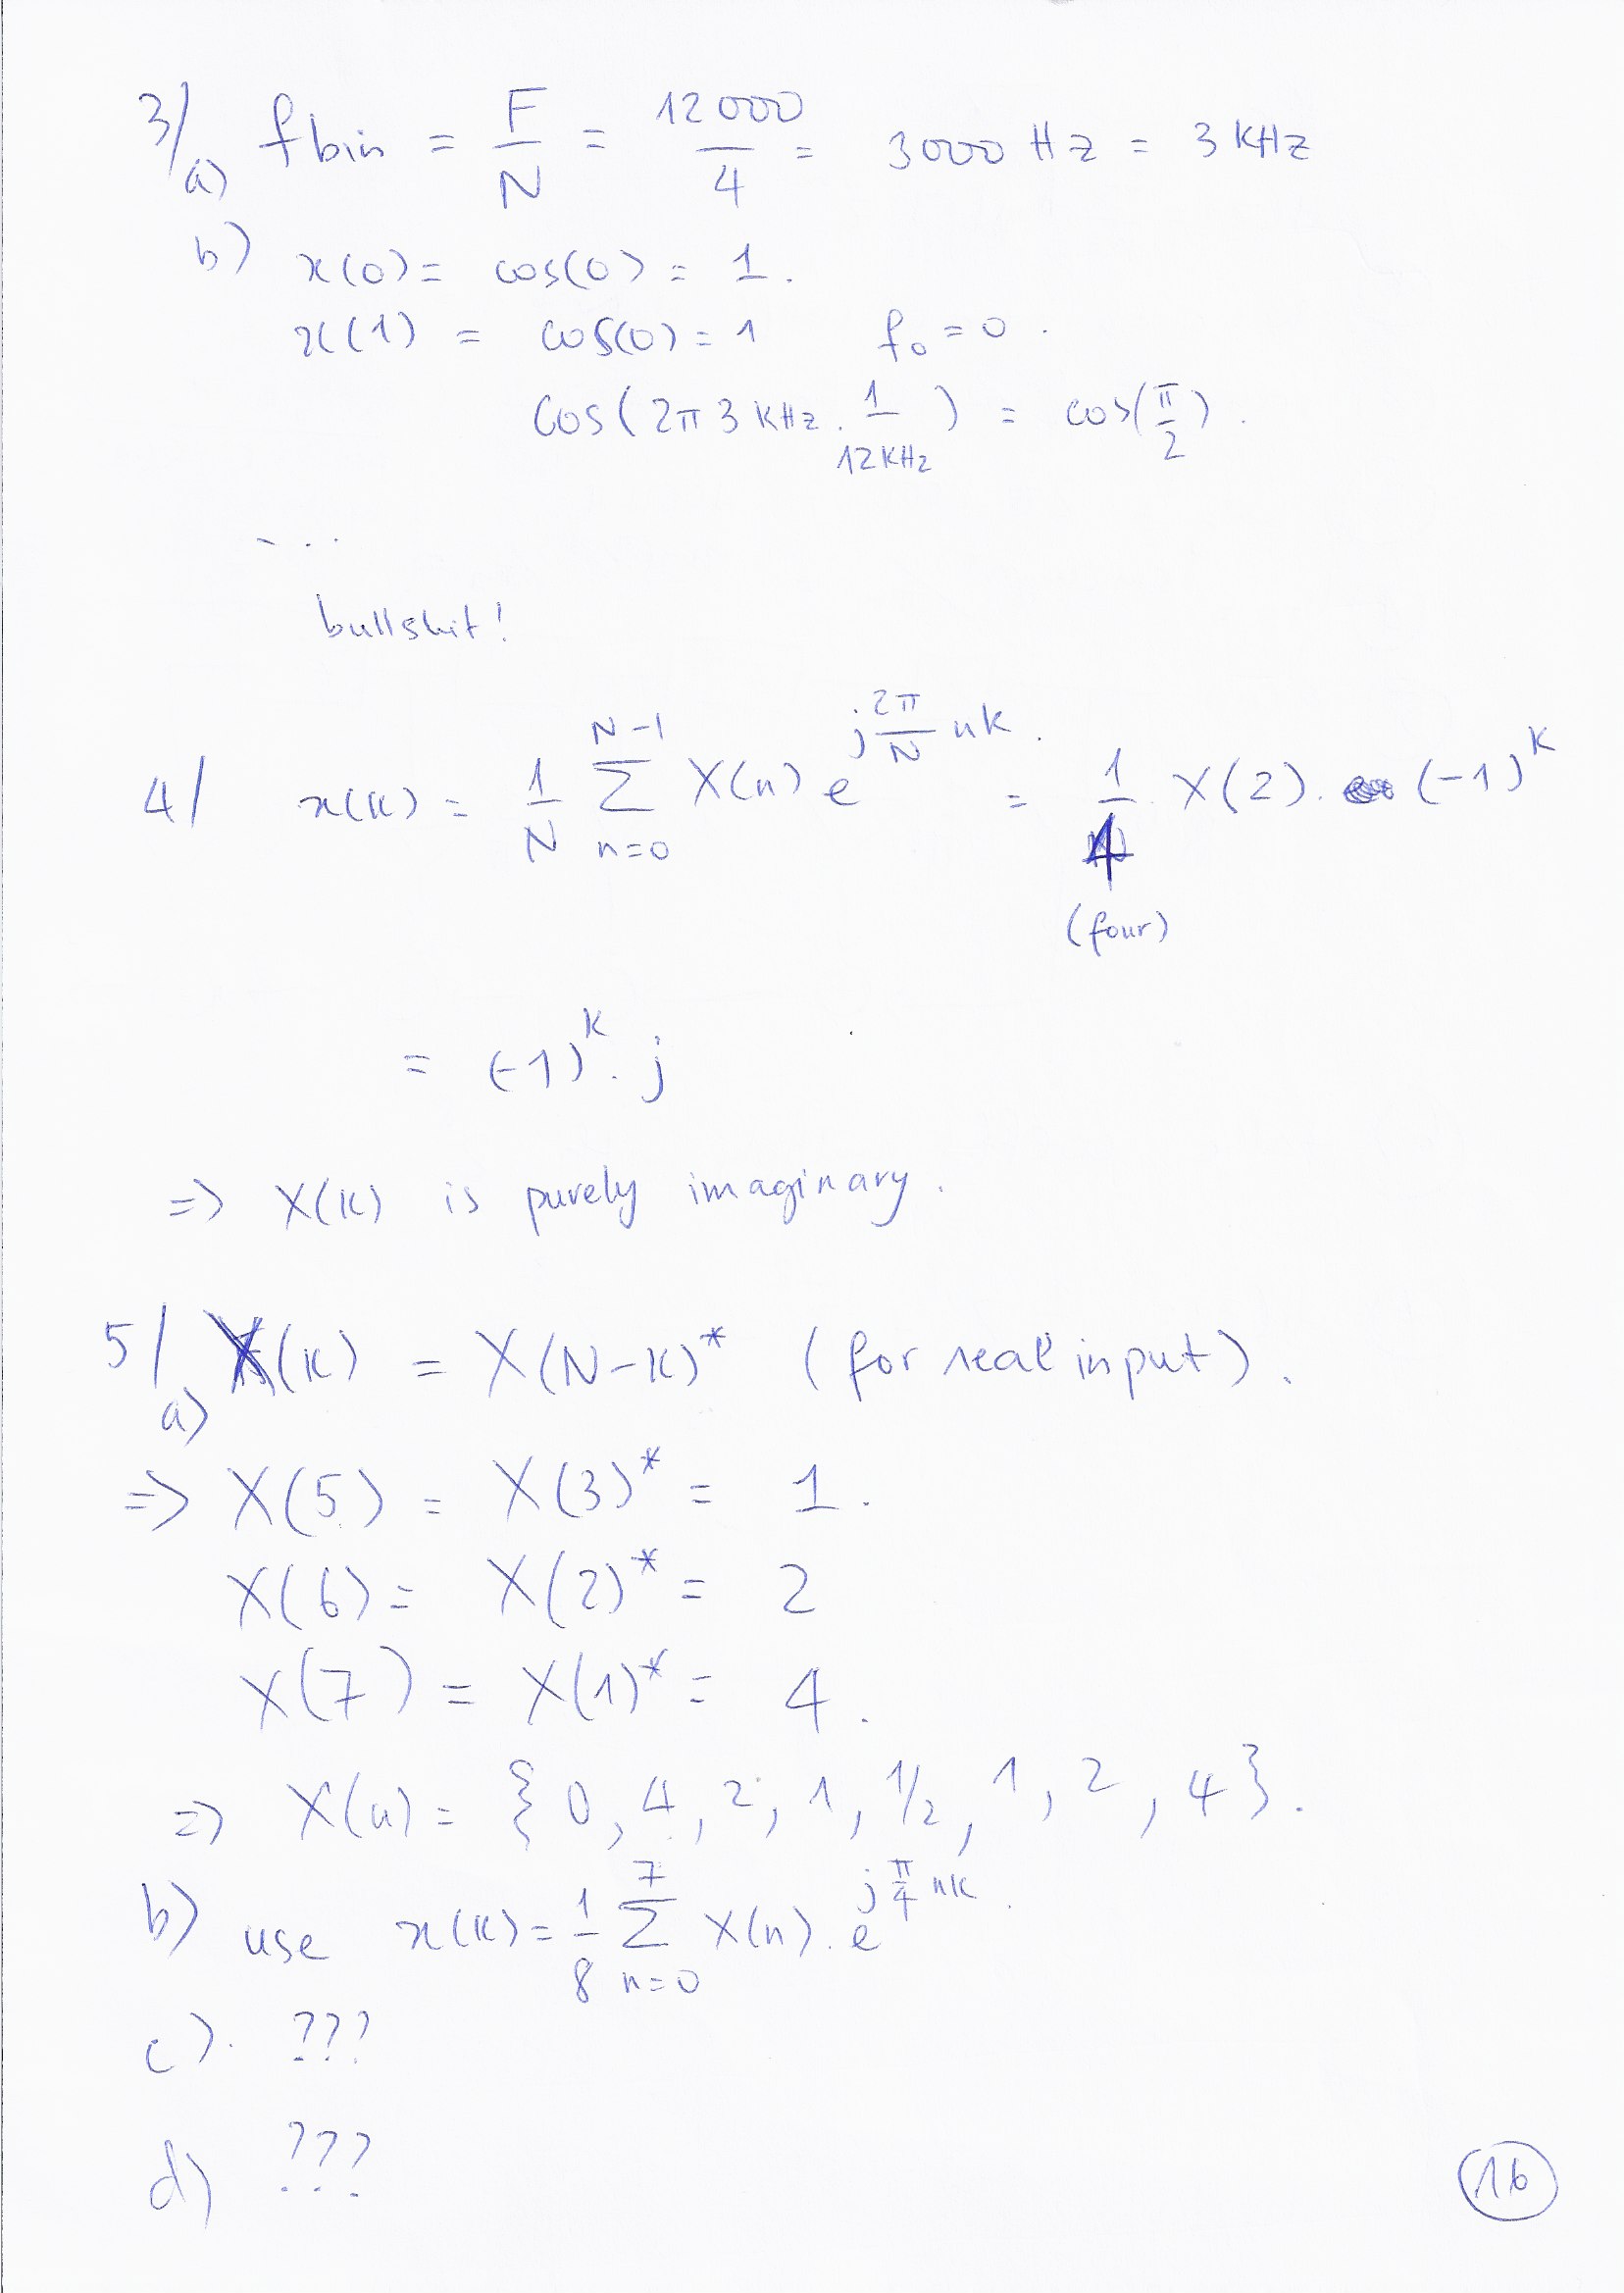 3/ a) fbin = F/N = 12000/4 = 3000 Hz = 3 KHz
b) x(0) = cos(0) = 1.
x(1) = cos(0) = 1 f₀ = 0.
cos(2π 3 KHz . 1/12KHz) = cos(π/2).
- . .
bullshit!
4/ x(k) = 1/N ∑_{n=0}^{N-1} X(n) e^{j 2π/N nk}. = 1/4 . X(2). (-1)^k
(four)
= (-1)^k . j
=> X(k) is purely imaginary.
5/ a) X(k) = X(N-k)* (for real input).
=> X(5) = X(3)* = 1.
X(6) = X(2)* = 2
X(7) = X(1)* = 4.
=> X(n) = {0, 4, 2, 1, 1/2, 1, 2, 4}.
b) use x(k) = 1/8 ∑_{n=0}^{7} X(n). e^{j π/4 nk}.
c). ???
d) ???
16